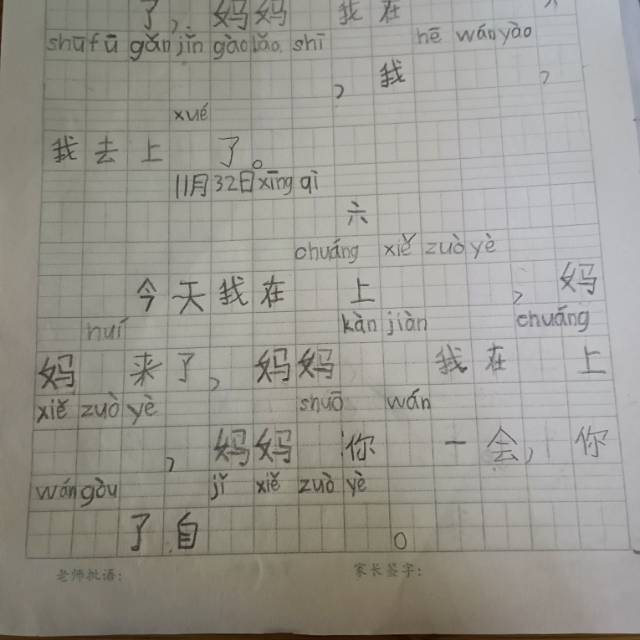 了，妈妈 我在
shūfū gǎnjǐn gàolǎo shī hē wányào
，我 ，
xué
我去上 了。
11月32日xīngqì
六
chuáng xiě zuòyè
今天我在 上 ，妈
huí kànjiàn chuáng
妈 来了，妈妈 我在 上
xiě zuòyè shuō wán
，妈妈 你 一会，你
wángòu jǐ xiě zuòyè
了自 。
老师批语： 家长签字：